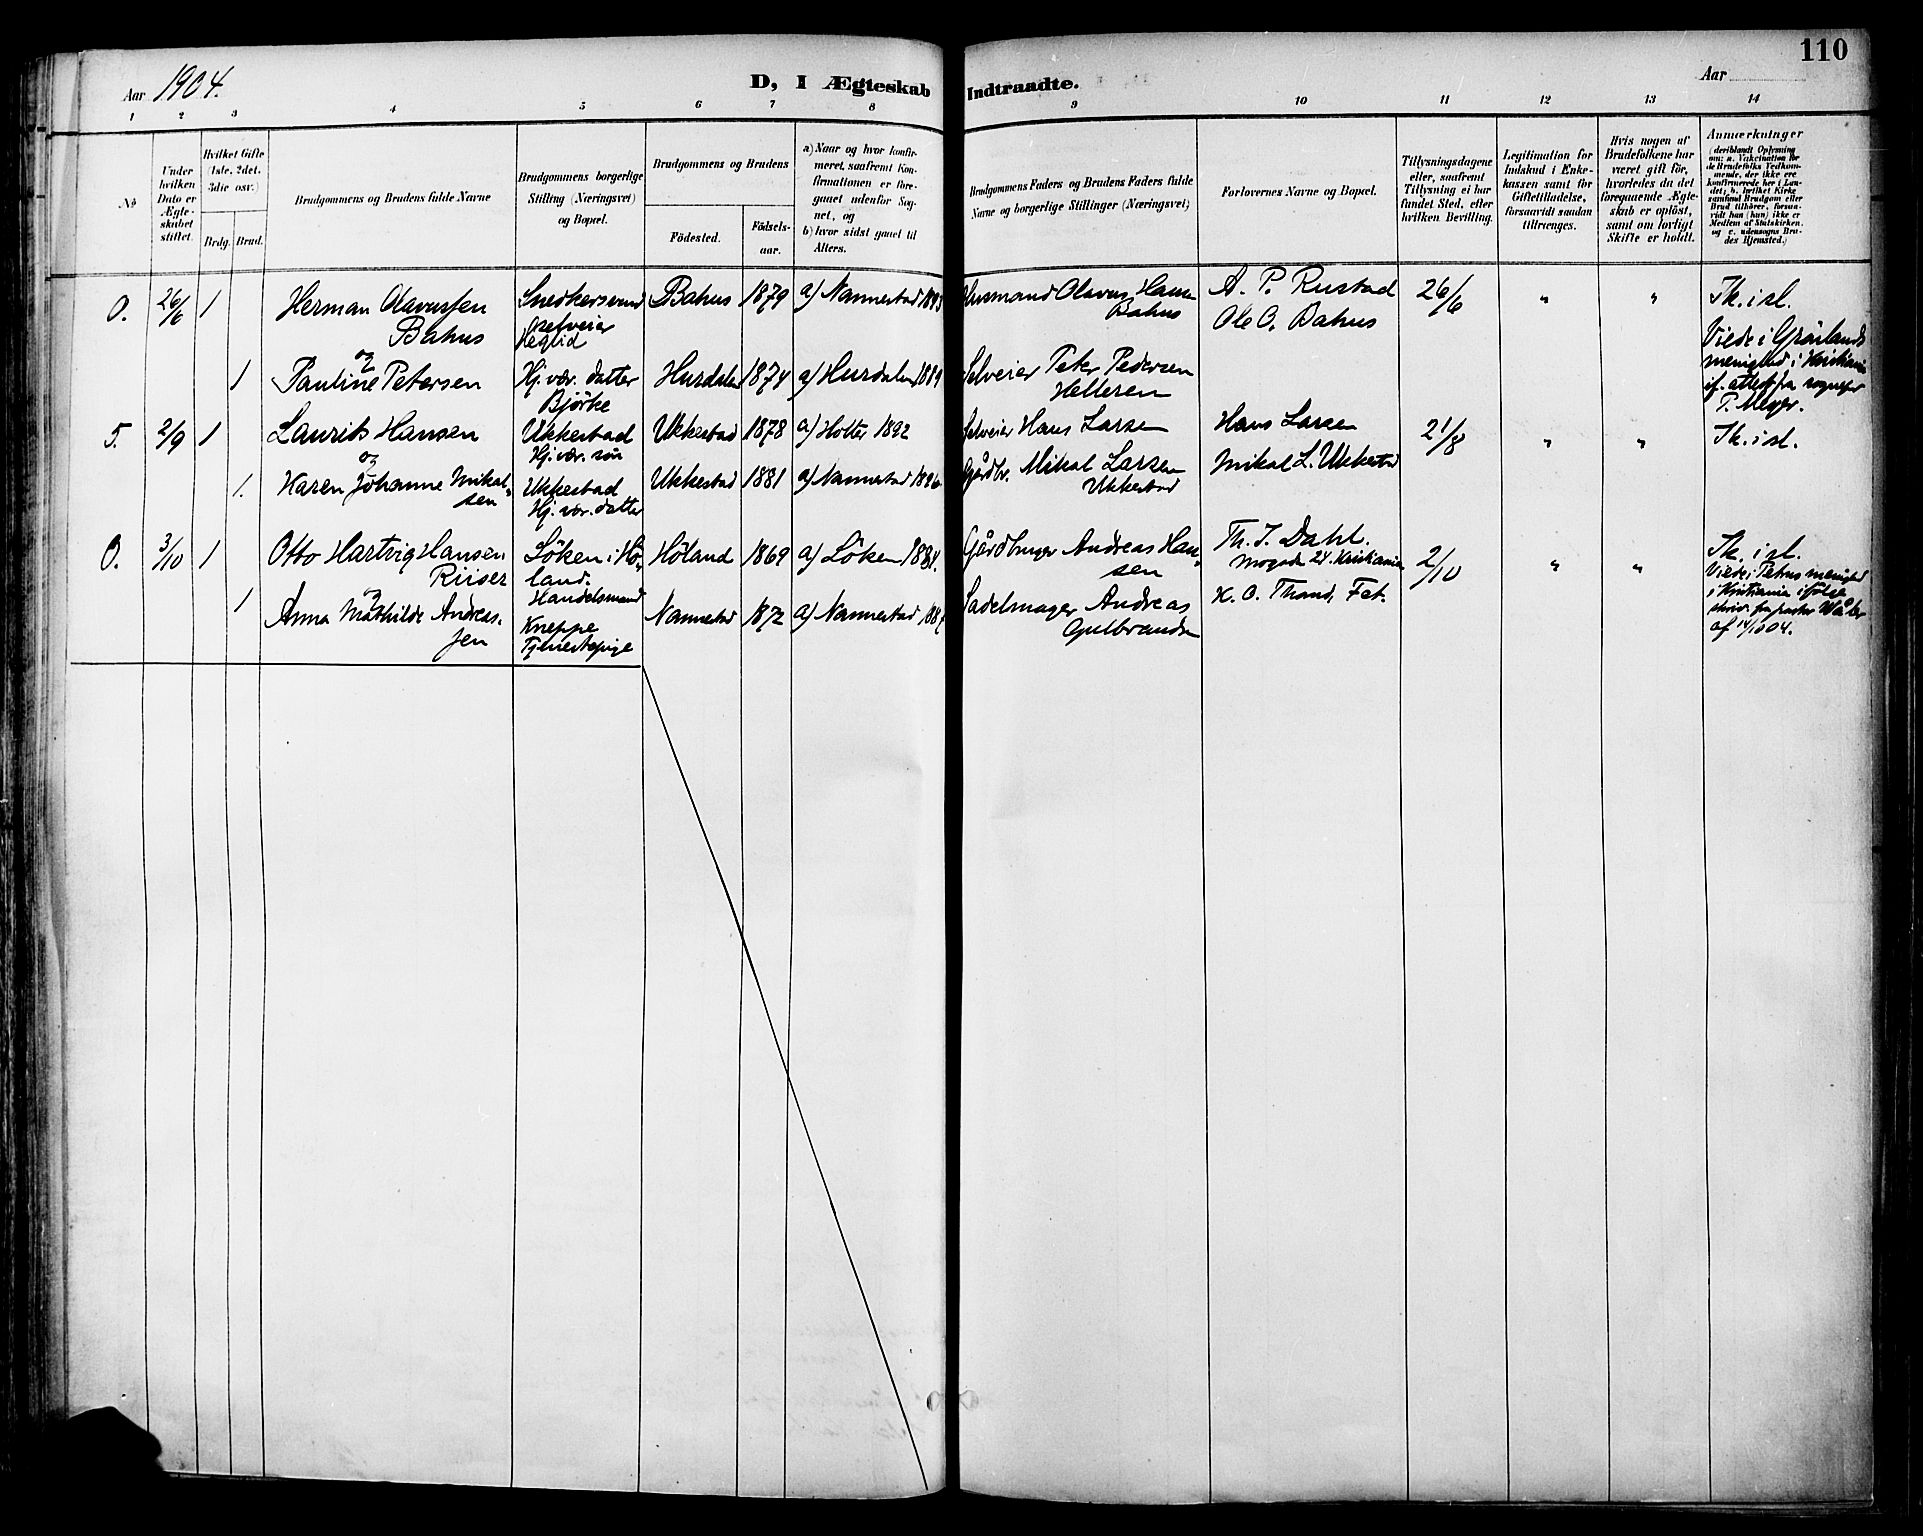 110
Aar 1904.
D, I Ægteskab Indtraadte.
Aar
1 2 3 4 5 6 7 8 9 10 11 12 13 14
№
Under hvilken Dato er Ægteskabet stiftet.
Hvilket Gifte (1ste, 2det, 3die osv.)
Brdg. Brud.
Brudgommens og Brudens fulde Navne
Brudgommens borgerlige Stilling (Næringsvei) og Bopæl.
Brudgommens og Brudens
Fødested.
Fødselsaar.
a) Naar og hvor konfirmeret, saafremt Konfirmationen er foregaaet udenfor Sognet, og
b) hvor sidst gaaet til Alters.
Brudgommens Faders og Brudens Faders fulde Navne og borgerlige Stillinger (Næringsvei)
Forlovernes Navne og Bopæl.
Tillysningsdagene eller, saafremt Tillysning ei har fundet Sted, efter hvilken Bevilling.
Legitimation for Indskud i Enkekassen samt for Giftetilladelse, forsaavidt saadan tiltrænges.
Hvis nogen af Brudefolkene har været gift før, hvorledes da det foregaaende Ægteskab er opløst, samt om lovligt Skifte er holdt.
Anmærkninger
(deriblandt Oplysning om: a. Vakcination for de Brudefolks Vedkommende, der ikke ere konfirmerede her i Landet; b. hvilket Kirkesamfund Brudgom eller Brud tilhører, forsaavidt han (hun) ikke er Medlem af Statskirken, og c. udensogns Brudes Hjemsted.)
0. 26/6 1 Herman Olavussen Bahus
Snedkersvend
Bahus 1879 a) Nannestad 1893
Husmand Olavus Hansen Bahus
A. P. Rustad
Ole O. Bahus
26/6 " "
Tk. i sl.
Viede i Grønlands
menighed i Kristiania
if. attest fra sognepr
T. Meyer.
og
1 Pauline Petersen
Hj. vær. datter
Bjørke
Hurdalen 1874 a) Hurdalen 1889
Selveier Peter Pedersen
Hellesen
5. 2/9 1 Laurits Hansen
Ukkestad
Hj. vær. søn
Ukkestad 1878 a) Holter 1892
Selveier Hans Larsen
Hans Larsen
21/8 " "
Tk. i sl.
og
1. Karen Johanne Mikalsen
Ukkestad
Hj. vær. datter
Ukkestad 1881 a) Nannestad 1896
Gårdbr. Mikal Larsen
Ukkestad
Mikal L. Ukkestad
0. 3/10 1 Otto Hartvig Hansen
Riiser
Løken i Høland.
Handelsmand
Høland 1869 a) Løken 1884.
Gårdbruger Andreas Hansen
Th. J. Dahl.
24 Kristiania
2/10 " "
Tk. i sl.
Viede i Petrus menighed
i Kristiania ifølge
skriv. fra pastor
af 14/10 04.
og
1 Anna Mathilde Andreassen
Kneppe
Tjenestepige
Nannestad 1872 a) Nannestad
Sadelmager Andreas
Gulbrandsen